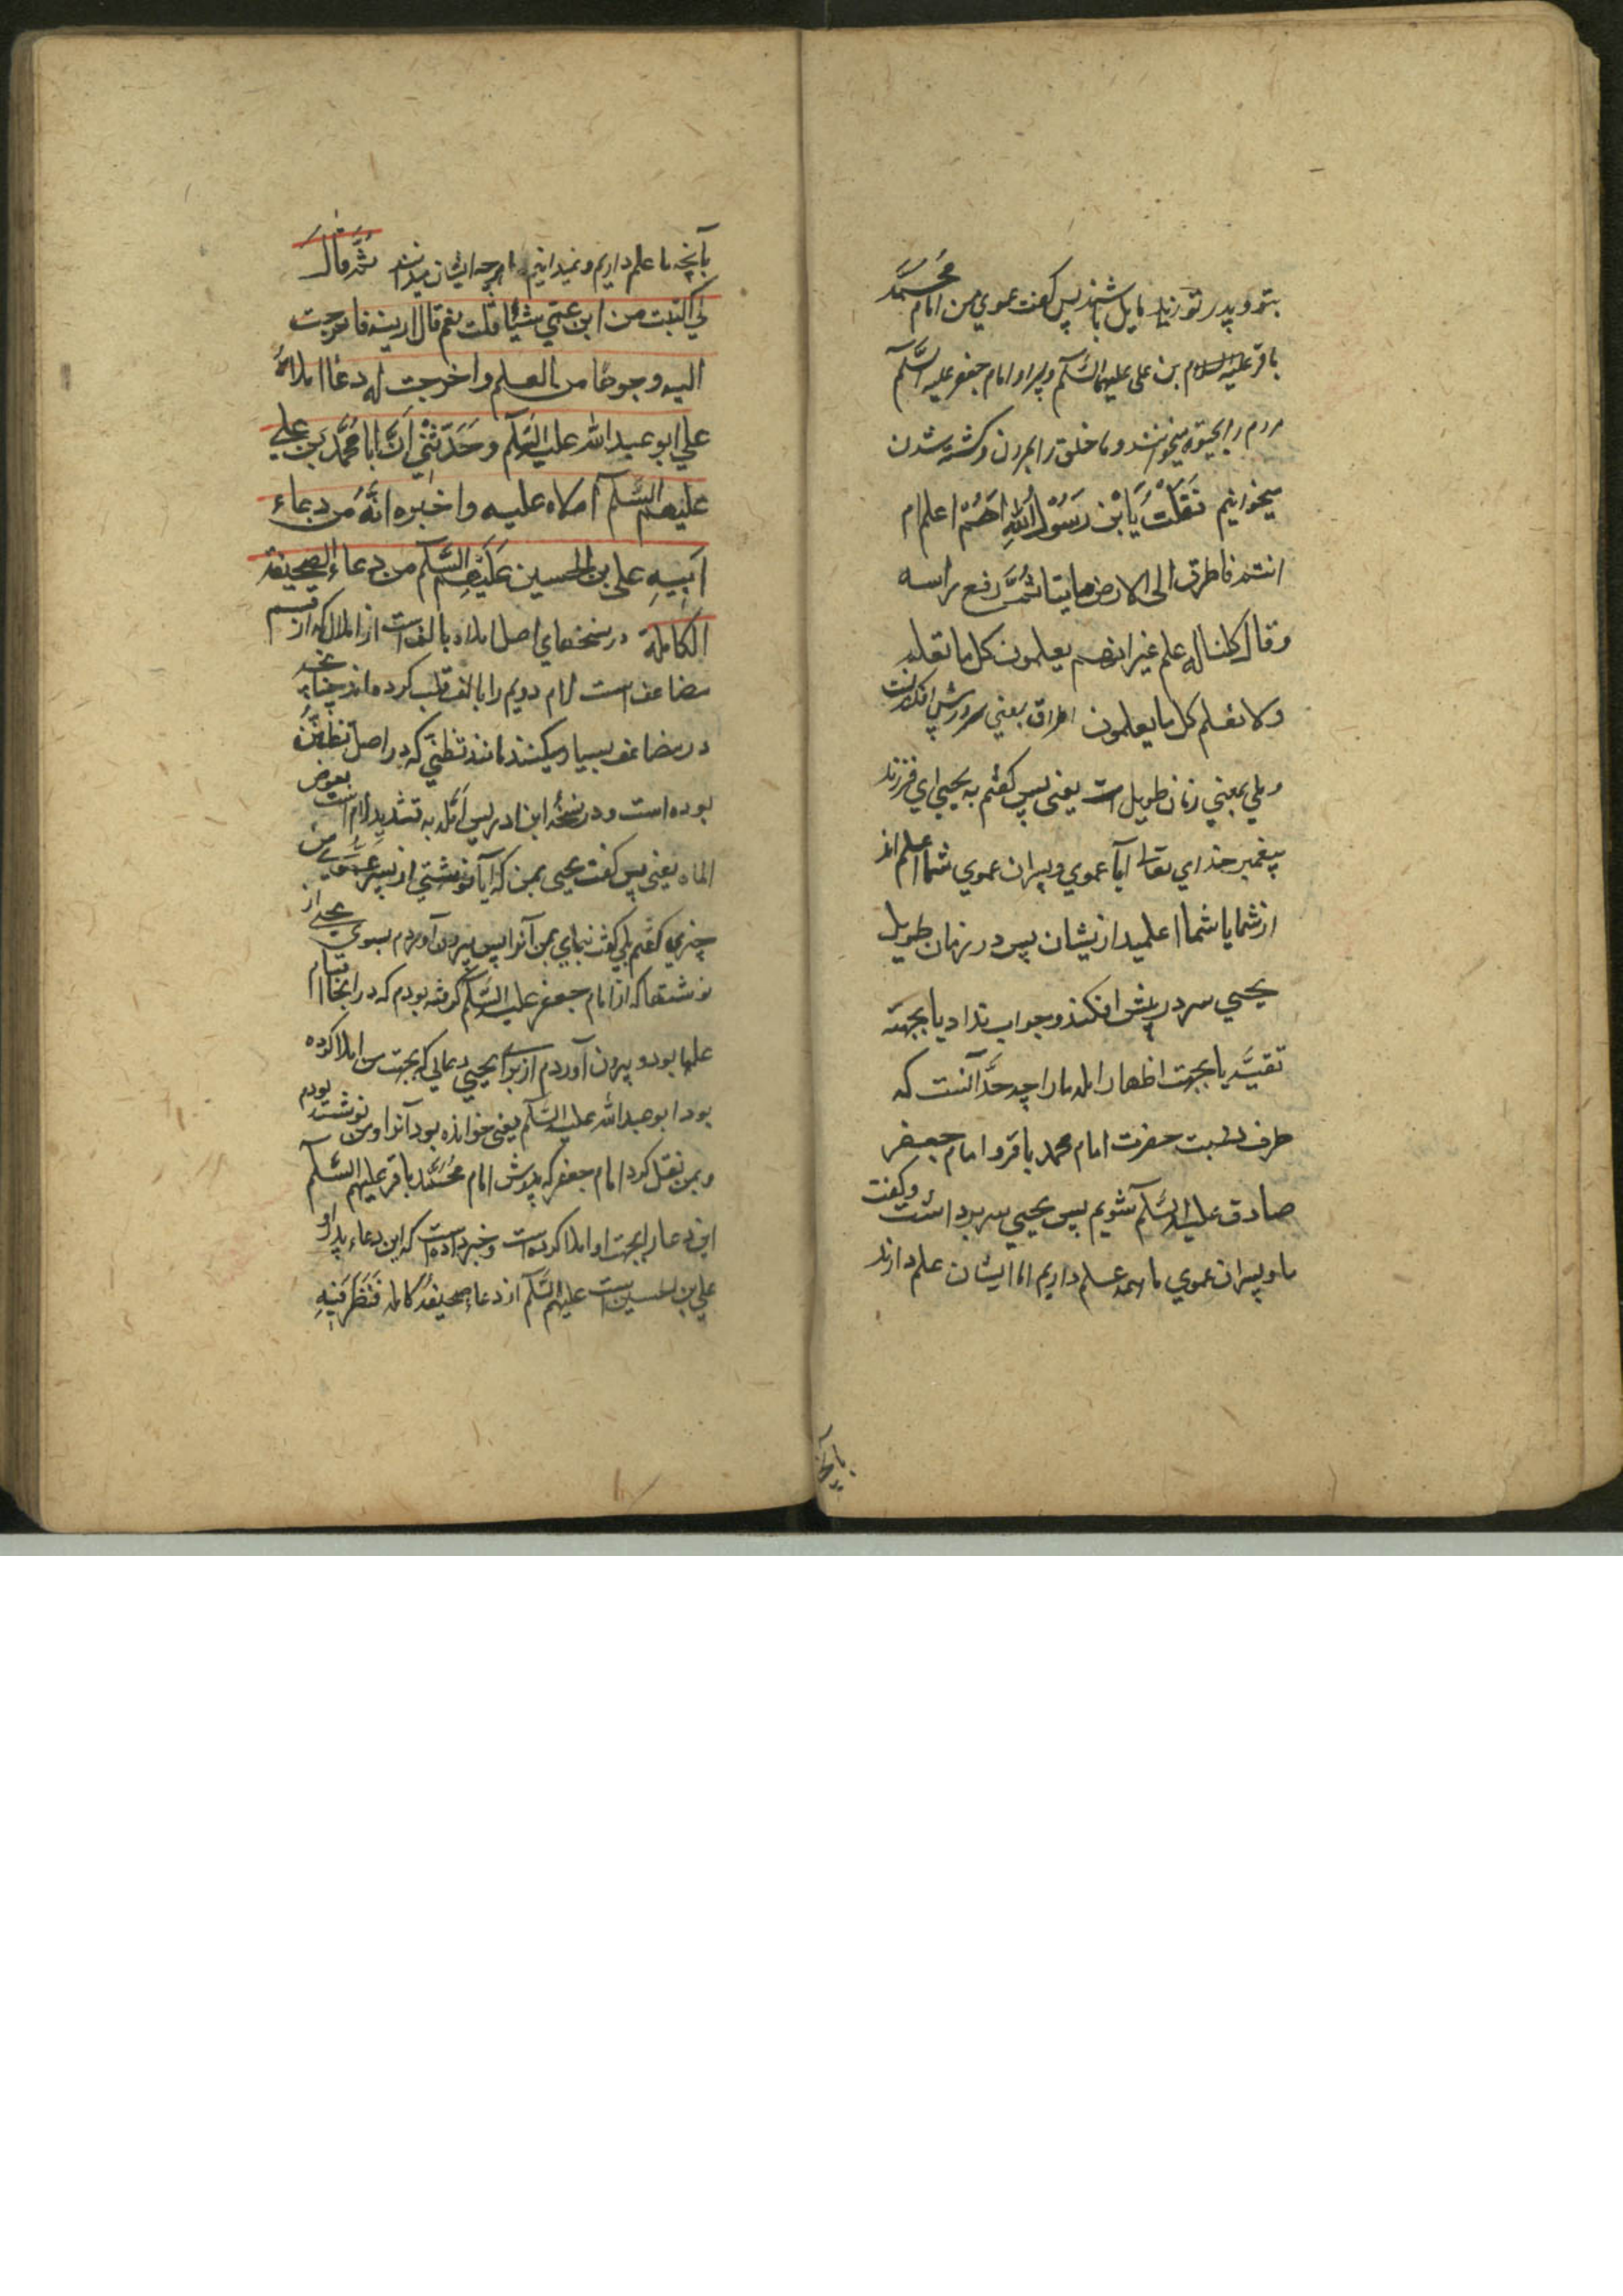 بتو و پدر تو زیاد مایل باشند پس گفت عموی من امام محمد
باقر علیه السلام بن علی علیهما السَّلَم و پسر او امام جعفر علیه السَّلَم
مردم را بحیوة میخوانند و ما خلق را بمردن و کشته شدن
میخوانیم فَقُلْتُ یَا بْنَ رَسُوْلِ اللهِ اَهُمْ اعلم ام
انتم فاطرق الی الارض ملیتا ثُمَّ رفع راسه
و قال کلنا له علم غیر انهم یعلمون کل ما نعلم
ولا نعلم کل ما یعلمون اطراق یعنی سر در پیش افکندنست
و ملی بمعنی زمان طویل است یعنی پس گفتم به یحیی ای فرزند
پیغمبر خدای تعالی آیا عموی و پسران عموی شما اعلم اند
از شما یا شما اعلمید از یشان پس در زمان طویل
یحیی سر در پیش افکند و جواب نداد یا بجهته
تقیَّه یا بجهت اظهار الم ما را چه حدَّ آنست که
طرف نسبت حضرت امام محمد باقر و امام جعفر
صادق علیه السَّلَم شویم پس یحیی سر برداشت و گفت
ما و پسران عموی ما همه علم داریم اما ایشان علم دارند
بآنچه
بآنچه ما علم داریم و نمیدانیم ما هرچه ایشان میدانند ثُمَّ قَالَ
لی اکتبت من ابن عمّی شیئًا قلت نعم قال ارینه فاخرجت
الیه وجوهًا من العلم و اخرجت له دعاءً املاهُ
علی ابو عبد الله علیه السَّلَم وَحَدَّثَنِی اَنَّ اباهُ مُحَمَّد بَنِ علی
علیهما السَّلَم املاه علیه و اخبره انَّهُ من دعاء
ابیهِ علی بن الحسین عَلَیْهِم السَّلَم من دعاء الصحیفة
الکاملة در نسخهای اصل املاه بالف است از املال که از قسم
مضاعف است لام دویم را بالف قلب کرده اند چنانچه
در مضاعف بسیار میکنند مانند تظنّی که در اصل تظنُّن
بوده است و در نسخهٔ ابن ادریس اَمَلَّه به تشدید لام است بعوض
املاه یعنی پس گفت یحیی بمن که آیا نوشتی از پسر عَمّ من
چیزی گفتم بلی گفت بنمای بمن آنرا پس بیرون آوردم بسوی یحیی از
نوشتها که از امام جعفر علیه السَّلَم گرفته بودم که در انجا اقسام
علمها بود و بیرون آوردم از برای یحیی دعائی که بجهت من املا کرده
بود ابو عبد الله علیه السَّلَم یعنی خوانده بود آنرا و من نوشته بودم
و بمن نقل کرد امام جعفر که پدرش امام مُحَمَّد باقر علیهم السَّلَم
این دعا را بجهت او املا کرده است و خبر داده است که این دعاء پدر او
علی بن الحسین است علیهم السَّلَم از دعاء صحیفهٔ کامله فَنَظَرَ فیهِ